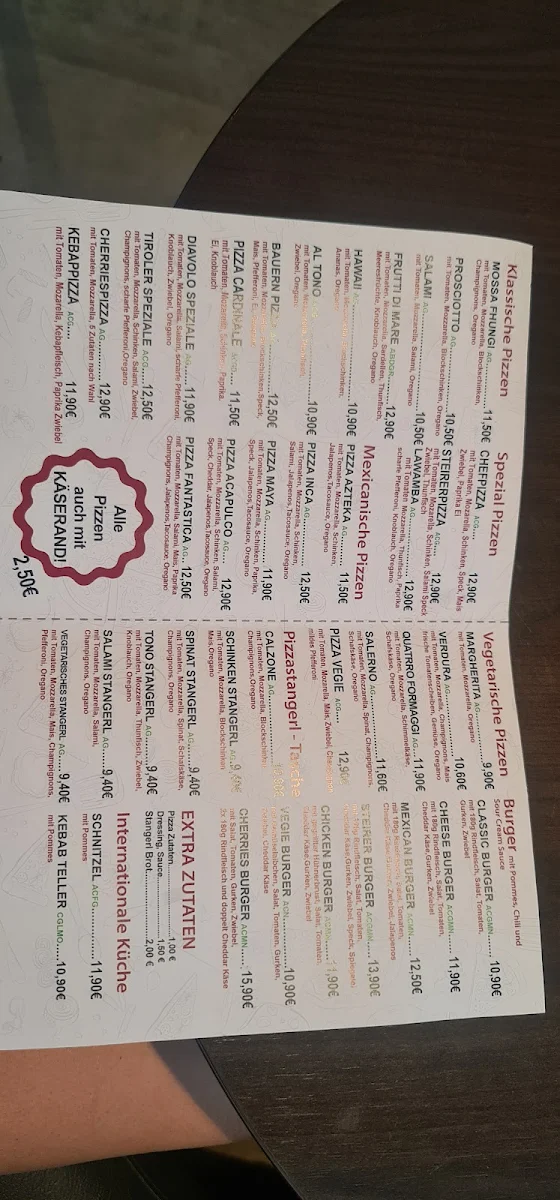 Klassische Pizzen
MOSSA FHUNGI AG......11,50€
mit Tomaten, Mozzarella, Blockschinken,
Champignons, Oregano
PROSCIOTTO AG......10,50€
mit Tomaten, Mozzarella, Blockschinken, Oregano
SALAMI AG......10,50€
mit Tomaten, Mozzarella, Salami, Oregano
FRUTTI DI MARE ABDGR......12,90€
mit Tomaten, Mozzarella, Sardellen, Thunfisch,
Meeresfrüchte, Knoblauch, Oregano
HAWAII AG......10,90€
mit Tomaten,
Ananas, Oregano
AL TONO......10,90€
mit Tomaten,
Zwiebel, Oregano
BAUERN PIZZA......12,50€
mit Tomaten, Blockschinken, Speck,
Mais, Pfefferoni,
PIZZA CARDINALE......11,50€
mit Tomaten, Mozzarella, Paprika,
Ei, Knoblauch
DIAVOLO SPEZIALE AG......11,90€
mit Tomaten, Mozzarella, Salami, scharfe Pfefferoni,
Knoblauch, Zwiebel, Oregano
TIROLER SPEZIALE ACG......12,50€
mit Tomaten, Mozzarella, Schinken, Salami, Zwiebel,
Champignons, scharfe Pfefferoni, Oregano
CHERRIESPIZZA AG......12,90€
mit Tomaten, Mozzarella, 5 Zutaten nach Wahl
KEBAPPIZZA ACG......11,90€
mit Tomaten, Mozzarella, Kebapfleisch, Paprika Zwiebel
Spezial Pizzen
CHEFPIZZA ACG......12,90€
mit Tomaten, Mozzarella, Schinken, Speck, Mais
Zwiebel, Paprika Ei
STEIRERPIZZA ACG......12,90€
mit Tomaten, Mozzarella, Schinken, Salami Speck
Zwiebel, Thunfisch
LAWAMBA AG......12,90€
mit Tomaten Mozzarella, Thunfisch, Paprika
scharfe Pfefferoni, Knoblauch, Oregano
Mexicanische Pizzen
PIZZA AZTEKA AG......11,50€
mit Tomaten, Mozzarella, Schinken,
Jalapenos, Tacosauce, Oregano
PIZZA INCA AG......12,50€
mit Tomaten, Mozzarella, Schinken,
Salami, Jalapenos, Tacosauce, Oregano
PIZZA MAYA AG......11,90€
mit Tomaten, Mozzarella, Schinken, Paprika,
Speck, Jalapenos, Tacosauce, Oregano
PIZZA ACAPULCO AG......12,90€
mit Tomaten, Mozzarella, Schinken, Salami,
Speck, Cheddar, Jalapenos, Tacosauce, Oregano
PIZZA FANTASTICA AG......12,50€
mit Tomaten, Mozzarella, Salami, Mais, Paprika
Champignons, Jalapenos, Tacosauce, Oregano
Alle
Pizzen
auch mit
KÄSERAND!
2,50€
Vegetarische Pizzen
MARGHERITA AG......9,90€
mit Tomaten, Mozzarella, Oregano
VERDURA AG......10,60€
mit Tomaten, Mozzarella, Champignons, Mais
frische Tomatenscheiben, Gemüse, Oregano
QUATRRO FORMAGGI AG......11,90€
mit Tomaten, Mozzarella, Schimmelkäse,
Schafskäse, Oregano
SALERNO AG......11,60€
mit Tomaten, Mozzarella, Spinat, Champignons,
Schafskäse, Oregano
PIZZA VEGIE AG......12,90€
mit Tomaten, Mozzarella, Mais, Zwiebel, Champignon
mildes Pfefferoni
Pizzastangerl - Tasche
CALZONE AG......
mit Tomaten, Mozzarella, Blockschinken,
Champignons, Oregano
SCHINKEN STANGERL AG......9,40€
mit Tomaten, Mozzarella, Blockschinken,
Mais, Oregano
SPINAT STANGERL AG......9,40€
mit Tomaten, Mozzarella, Spinat, Schafskäse,
Champignons, Oregano
TONO STANGERL AG......9,40€
mit Tomaten, Mozzarella, Thunfisch, Zwiebel,
Knoblauch, Oregano
SALAMI STANGERL AG......9,40€
mit Tomaten, Mozzarella, Salami,
Champignons, Oregano
VEGETARISCHES STANGERL AG......9,40€
mit Tomaten, Mozzarella, Mais, Champignons,
Pfefferoni, Oregano
Burger mit Pommes, Chili und
Sour Cream Sauce
CLASSIC BURGER ACGMN......10,90€
mit 180g Rindfleisch, Salat, Tomaten,
Gurken, Zwiebel
CHEESE BURGER ACGMN......11,90€
mit 180g Rindfleisch, Salat, Tomaten,
Cheddar Käse, Gurken, Zwiebel
MEXICAN BURGER ACGMN......12,50€
mit 180g Rindfleisch, Salat, Tomaten,
Cheddar Käse, Gurken, Zwiebel, Jalapenos
STEIRER BURGER ACGMN......13,90€
mit 180g Rindfleisch, Salat, Tomaten,
Cheddar Käse, Gurken, Zwiebel, Speck, Spiegelei
CHICKEN BURGER ACGMN......11,90€
mit gegrillter Hühnerbrust, Salat, Tomaten,
Cheddar Käse, Gurken, Zwiebel
VEGIE BURGER AGN......10,90€
Salat, Tomaten, Gurken,
Cheddar Käse
CHERRIES BURGER ACMN......15,90€
mit Salat, Tomaten, Gurken, Zwiebel,
2x 180g Rindfleisch und doppelt Cheddar Käse
EXTRA ZUTATEN
Pizza Zutaten......1,00 €
Dressing, Sauce......1,50 €
Stangerl Brot......2,00 €
Internationale Küche
SCHNITZEL ACFG......11,90€
mit Pommes
KEBAB TELLER CGLMO......10,90€
mit Pommes